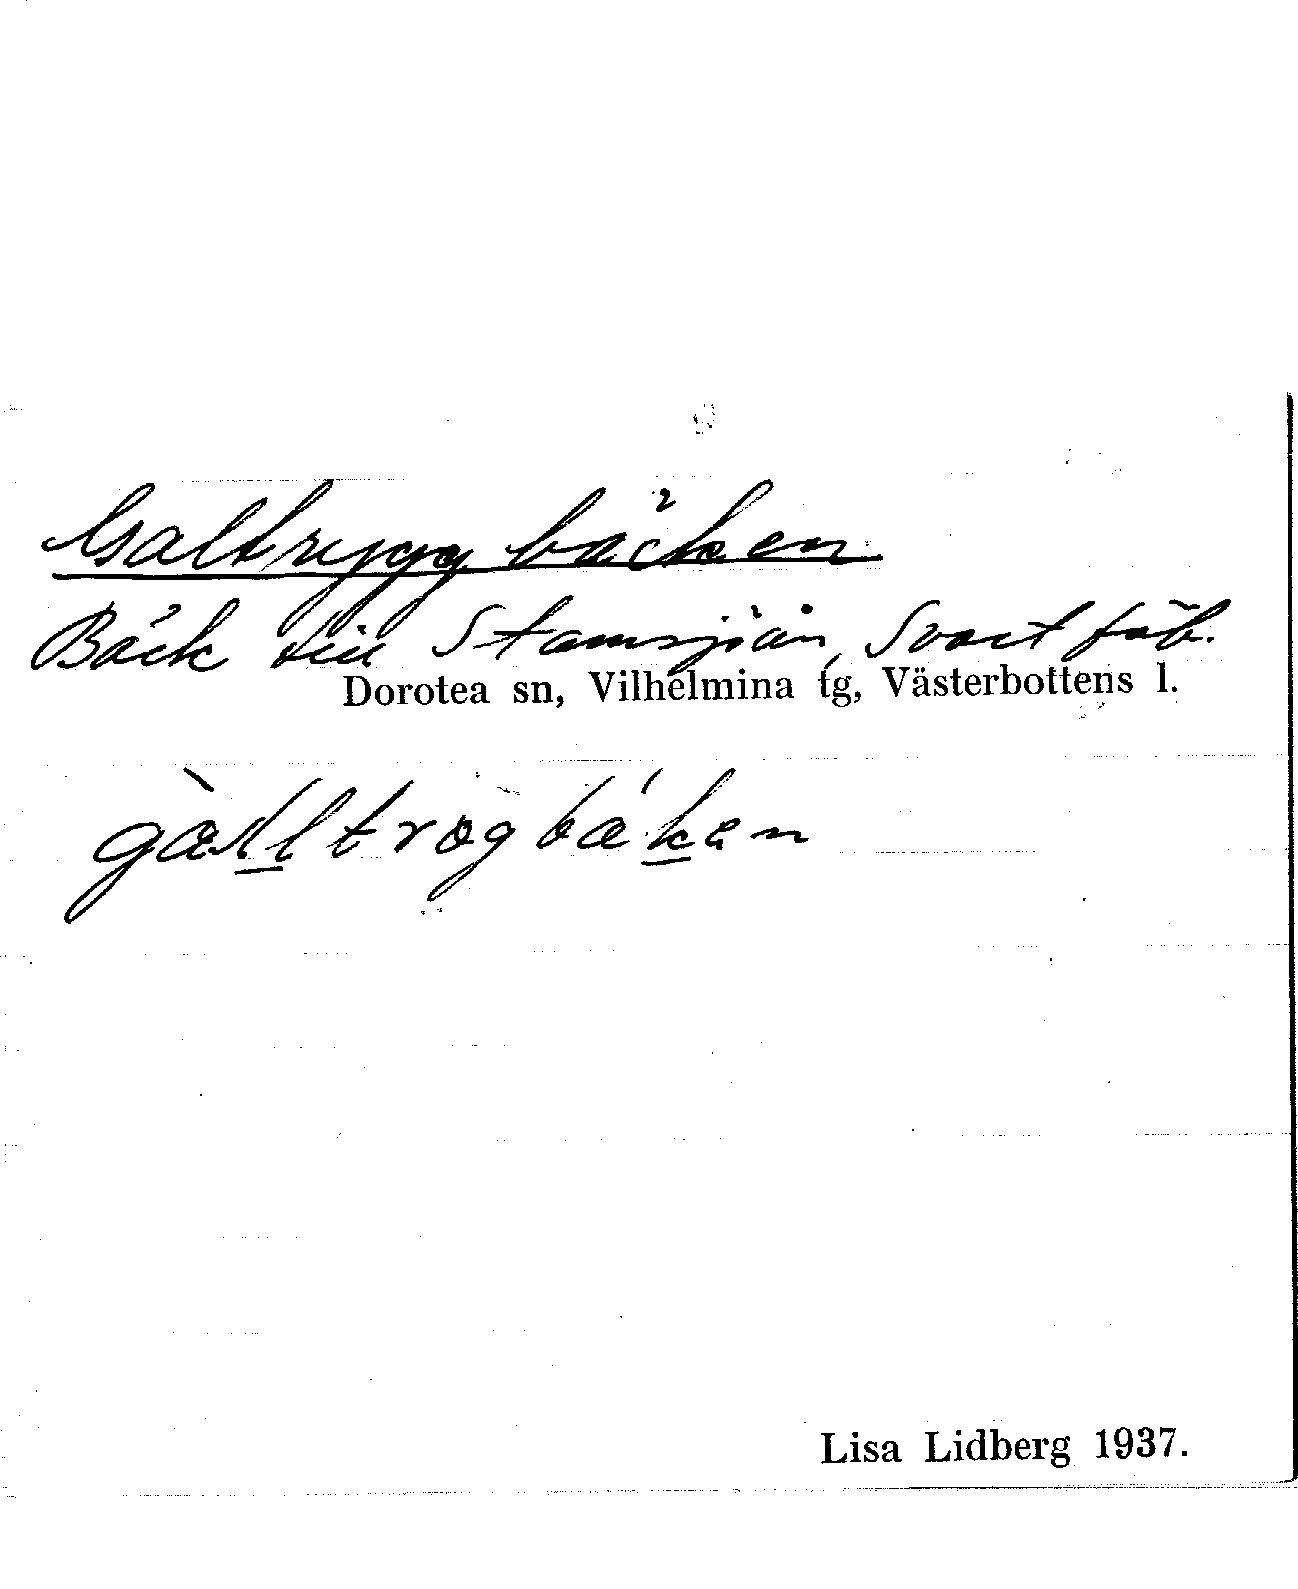 Galtryggbäcken
Bäck till Stamsjöån, Svart fäb.
Dorotea sn, Vilhelmina tg, Västerbottens l.
gàlltrøgbákan
Lisa Lidberg 1937.